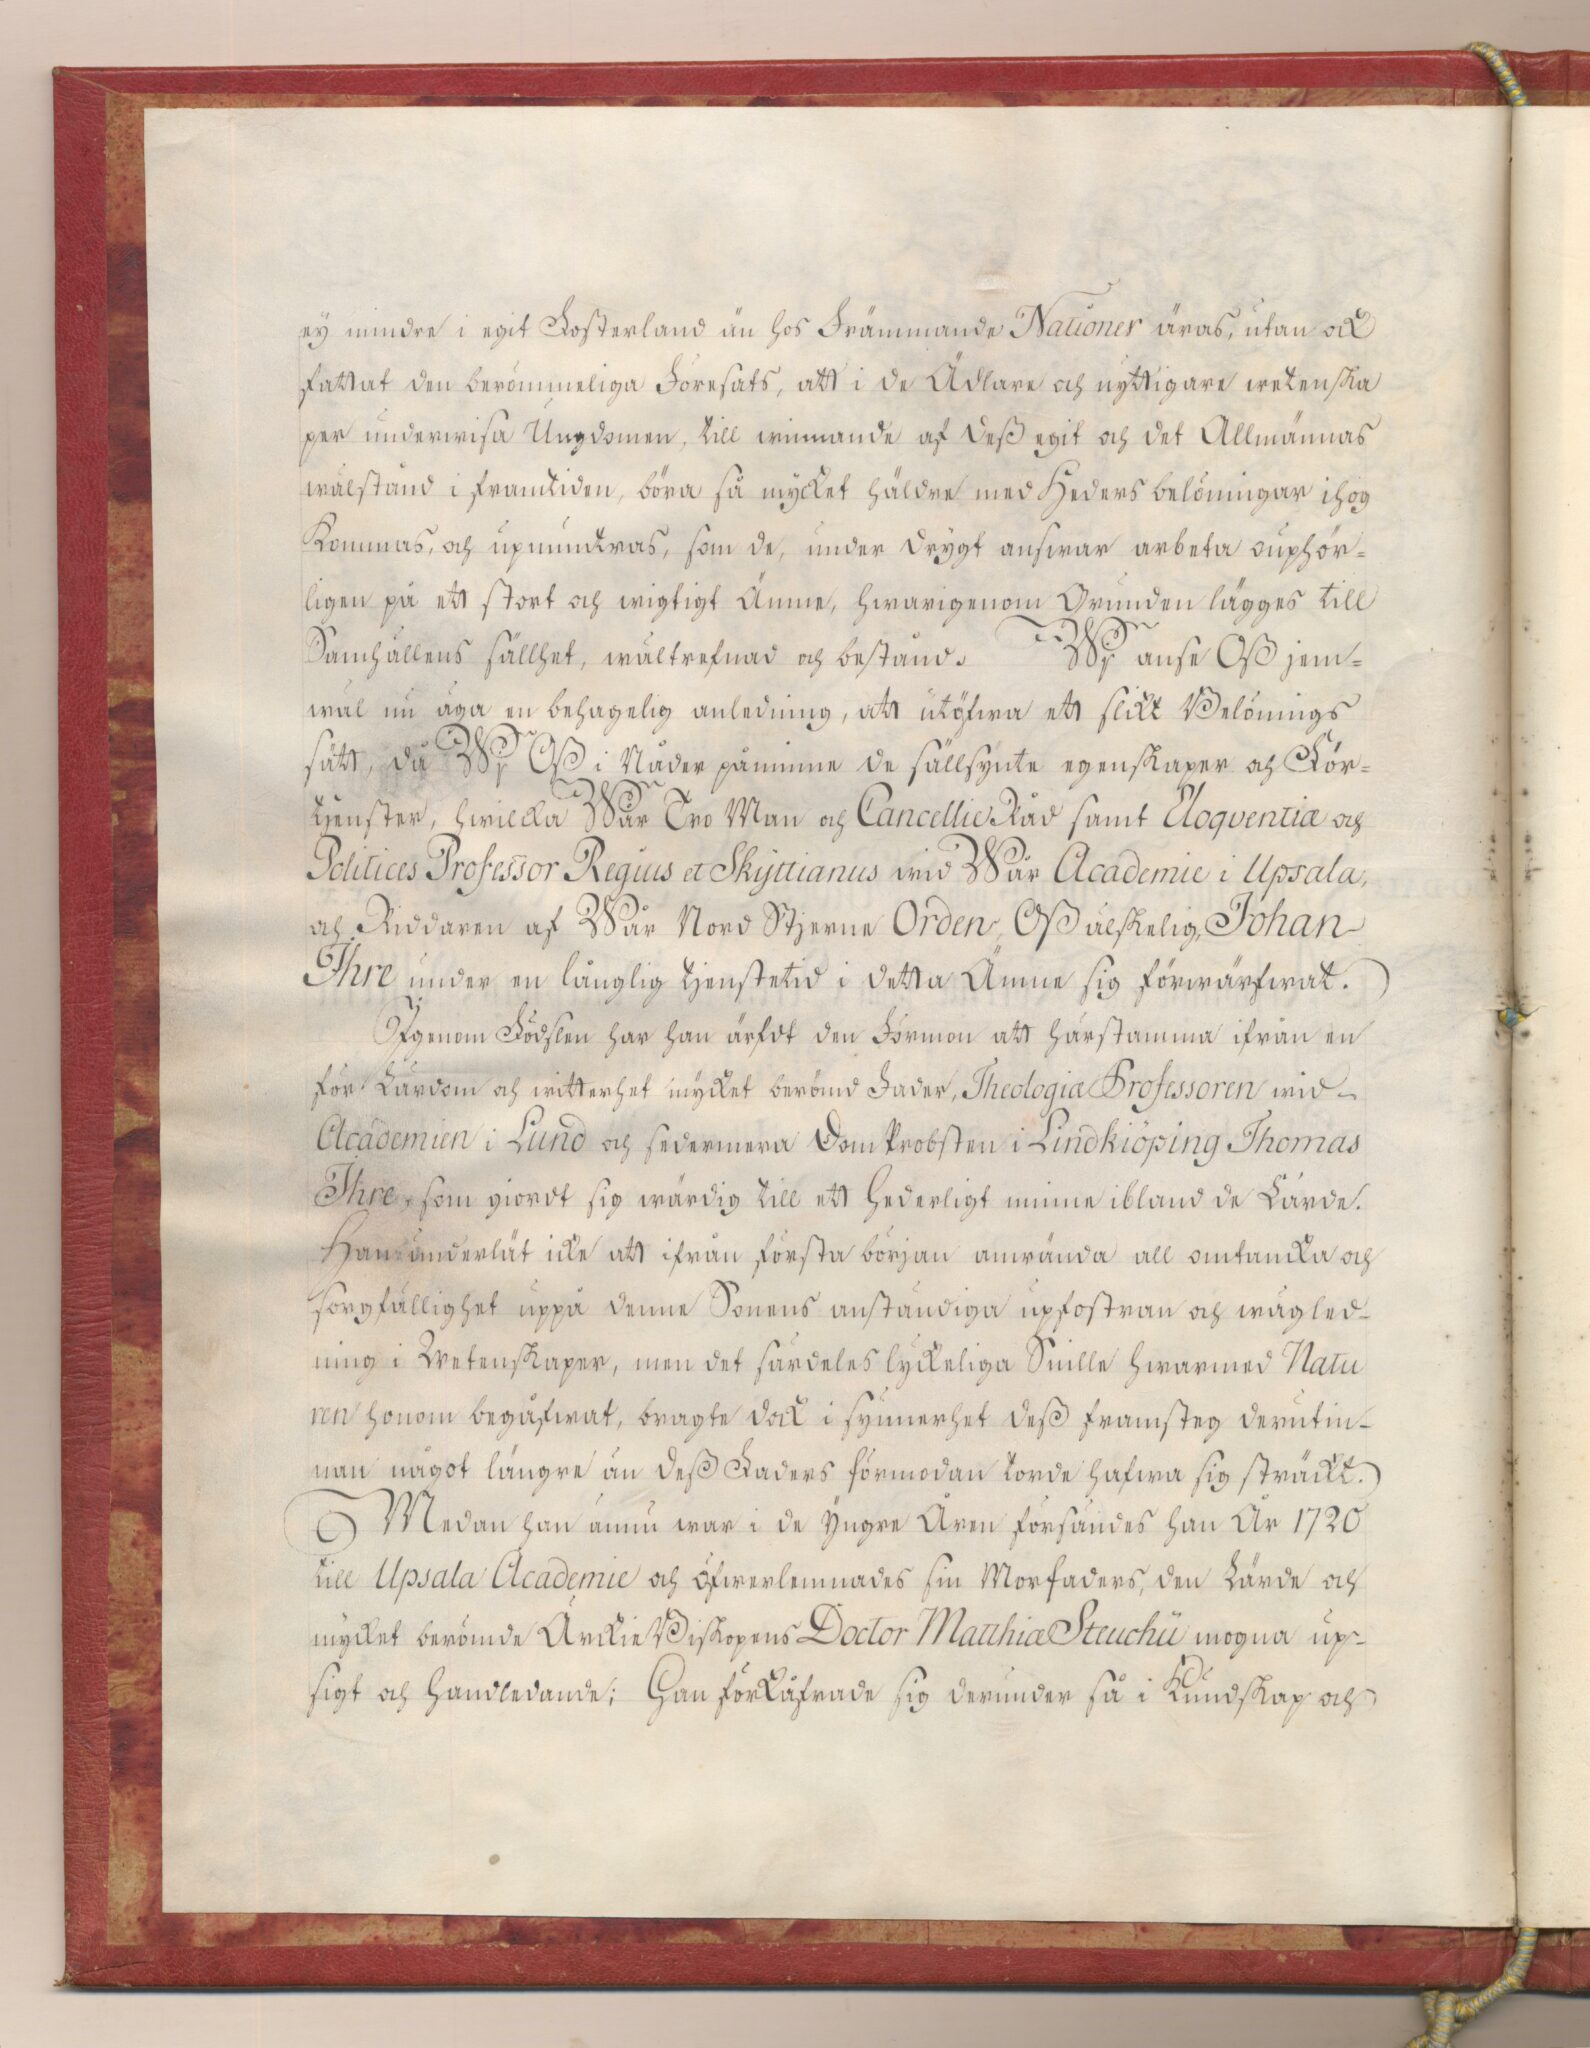 ey mindre i egit Fosterland än hos Främmande Nationer äras, utan ock
fattat den berömmeliga Föresats, att i de Ädlare och nyttigare wetenska
per underwisa Ungdomen, till winnande af deß egit och det Allmännas
wälstånd i framtiden, böra så mycket häldre med Heders belöningar ihog
kommas, och upmuntras, som de, under drygt answar arbeta ouphör-
ligen på ett stort och wigtigt Ämne, hwarigenom Grunden lägges till
Samhällens sällhet, wältrefnad och bestånd. Wy anse Oß jem-
wäl nu äga en behagelig anledning, att utöfwa ett slikt Belönings
sätt, då Wy Oß i Nåder påminne de sällsynte egenskaper och För-
tjenster, hwilcka Wår Tro Man och Cancellie Råd samt Eloqventiæ och
Politices Professor Regius et Skyttianus wid Wår Academie i Upsala,
och Riddaren af Wår Nord Stjerne Orden, Oß älskelig, Johan
Ihre under en långlig tjenstetid i detta Ämne sig förwärfwat.
Igenom Födslen har han ärfdt den Förmon att härstamma ifrån en
för Lärdom och witterhet mycket berömd Fader, Theologiæ Professoren wid
Academien i Lund och sedermera Dom Probsten i Lindkiöping Thomas
Ihre, som giordt sig wärdig till ett hederligt minne ibland de Lärde.
Han underlät icke att ifrån första början anwända all omtancka och
sorgfällighet uppå denne Sonens anständiga upfostran och wägled-
ning i Wetenskaper, men det särdeles lyckeliga Snille hwarmed Natu
ren honom begåfwat, bragte dock i synnerhet deß framsteg derutin-
nan något längre än deß Faders förmodan torde hafwa sig sträckt.
Medan han ännu war i de yngre Åren försändes han År 1720
till Upsala Academie och öfwerlemnades sin Morfaders, den Lärde och
mycket berömde Ärckie Biskopens Doctor Matthiæ Steuchii mogna up-
sigt och handledande; Han förkåfrade sig derunder så i Kundskap och